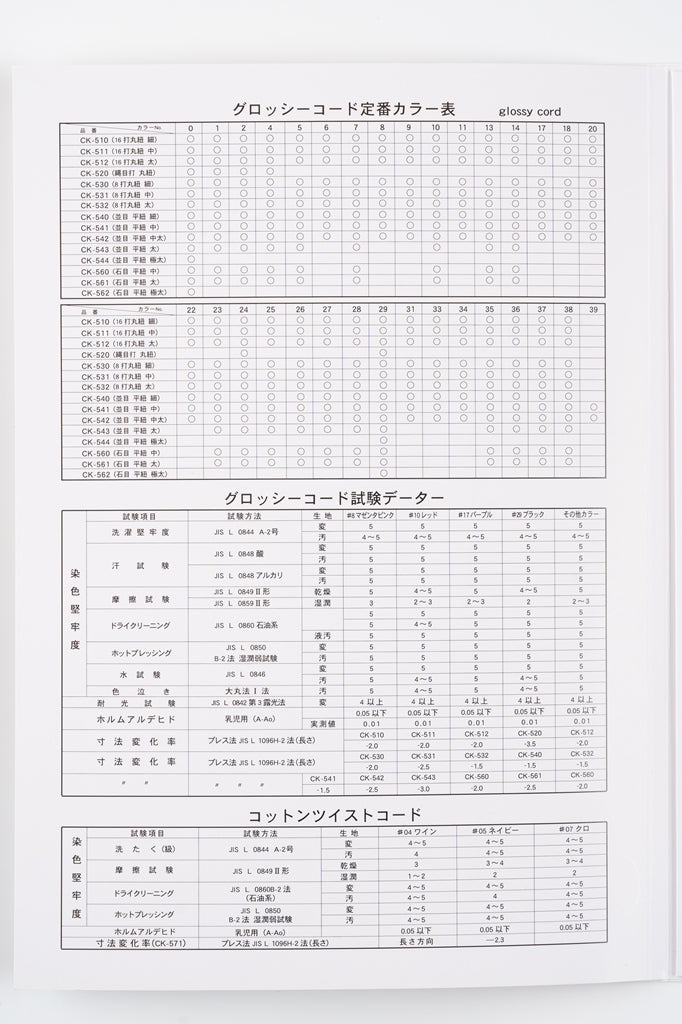 グロッシーコード定番カラー表 glossy cord
品番 カラーNo. 0 1 2 4 5 6 7 8 9 10 11 13 14 17 18 20
CK-510 (16 打丸紐 細) ○ ○ ○ ○ ○ ○ ○ ○ ○ ○ ○ ○ ○ ○ ○ ○
CK-511 (16 打丸紐 中) ○ ○ ○ ○ ○ ○ ○ ○ ○ ○ ○ ○ ○ ○ ○ ○
CK-512 (16 打丸紐 太) ○ ○ ○ ○ ○ ○ ○ ○ ○ ○ ○ ○ ○ ○ ○ ○
CK-520 (縄目打 丸紐) ○ ○ ○ ○
CK-530 (8 打丸紐 細) ○ ○ ○ ○ ○ ○ ○ ○ ○ ○ ○ ○ ○ ○ ○ ○
CK-531 (8 打丸紐 中) ○ ○ ○ ○ ○ ○ ○ ○ ○ ○ ○ ○ ○ ○ ○ ○
CK-532 (8 打丸紐 太) ○ ○ ○ ○ ○ ○ ○ ○ ○ ○ ○ ○ ○ ○ ○ ○
CK-540 (並目 平紐 細) ○ ○ ○ ○ ○ ○ ○ ○ ○ ○ ○ ○ ○ ○ ○ ○
CK-541 (並目 平紐 中) ○ ○ ○ ○ ○ ○ ○ ○ ○ ○ ○ ○ ○ ○ ○ ○
CK-542 (並目 平紐 中太) ○ ○ ○ ○ ○ ○ ○ ○ ○ ○ ○ ○ ○ ○ ○ ○
CK-543 (並目 平紐 太) ○ ○ ○ ○ ○ ○ ○ ○ ○
CK-544 (並目 平紐 極太) ○
CK-560 (石目 平紐 中) ○ ○ ○ ○ ○ ○ ○ ○ ○
CK-561 (石目 平紐 太) ○ ○ ○ ○ ○ ○ ○ ○ ○
CK-562 (石目 平紐 極太) ○
品番 カラーNo. 22 23 24 25 26 27 28 29 30 31 33 34 35 36 37 38 39
CK-510 (16 打丸紐 細) ○ ○ ○ ○ ○ ○ ○ ○ ○ ○ ○ ○ ○ ○ ○
CK-511 (16 打丸紐 中) ○ ○ ○ ○ ○ ○ ○ ○ ○ ○ ○ ○ ○ ○ ○
CK-512 (16 打丸紐 太) ○ ○ ○ ○ ○ ○ ○ ○ ○ ○ ○ ○ ○ ○ ○
CK-520 (縄目打 丸紐) ○ ○
CK-530 (8 打丸紐 細) ○ ○ ○ ○ ○ ○ ○ ○ ○ ○ ○ ○ ○ ○ ○
CK-531 (8 打丸紐 中) ○ ○ ○ ○ ○ ○ ○ ○ ○ ○ ○ ○ ○ ○ ○
CK-532 (8 打丸紐 太) ○ ○ ○ ○ ○ ○ ○ ○ ○ ○ ○ ○ ○ ○ ○
CK-540 (並目 平紐 細) ○ ○ ○ ○ ○ ○ ○ ○ ○ ○ ○ ○ ○ ○ ○
CK-541 (並目 平紐 中) ○ ○ ○ ○ ○ ○ ○ ○ ○ ○ ○ ○ ○ ○ ○ ○
CK-542 (並目 平紐 中太) ○ ○ ○ ○ ○ ○ ○ ○ ○ ○ ○ ○ ○ ○ ○ ○
CK-543 (並目 平紐 太) ○ ○ ○ ○ ○ ○ ○ ○ ○ ○ ○
CK-544 (並目 平紐 極太) ○
CK-560 (石目 平紐 中) ○ ○ ○ ○ ○ ○ ○ ○ ○ ○ ○
CK-561 (石目 平紐 太) ○ ○ ○ ○ ○ ○ ○ ○ ○ ○ ○
CK-562 (石目 平紐 極太) ○
グロッシーコード試験データー
試験項目 試験方法 生地 #8マゼンタピンク #10レッド #17パープル #29ブラック その他カラー
染色堅牢度
洗濯堅牢度 JIS L 0844 A-2号 変 5 5 5 5 5
汚 4〜5 4〜5 4〜5 4〜5 4〜5
汗試験 JIS L 0848 酸 変 5 5 5 5 5
汚 5 5 5 5 5
JIS L 0848 アルカリ 変 5 5 5 5 5
汚 5 5 5 5 5
摩擦試験 JIS L 0849 II形 乾燥 5 4〜5 5 4〜5 5
JIS L 0859 II形 湿潤 3 2〜3 2〜3 2 2〜3
ドライクリーニング JIS L 0860 石油系 5 5 5 5 5
5 4〜5 5 5 5
液汚 5 5 5 5 5
ホットプレッシング JIS L 0850 変 5 5 5 5 5
B-2法 湿潤弱試験 汚 5 5 5 5 5
水試験 JIS L 0846 変 5 5 5 5 5
汚 5 4〜5 5 4〜5 5
色泣き 大丸法 I 法 汚 5 4〜5 5 5 5
耐光試験 JIS L 0842 第3露光法 変 4以上 4以上 4以上 4以上 4以上
ホルムアルデヒド 乳児用 (A-Ao) 0.05以下 0.05以下 0.05以下 0.05以下 0.05以下
実測値 0.01 0.01 0.01 0.01 0.01
寸法変化率 プレス法 JIS L 1096H-2法(長さ) CK-510 CK-511 CK-512 CK-520 CK-512
-2.0 -2.0 -2.0 -3.5 -2.0
寸法変化率 プレス法 JIS L 1096H-2法(長さ) CK-530 CK-531 CK-532 CK-540 CK-532
-2.0 -2.5 -1.5 -1.5 -1.5
〃 〃 〃 〃 〃 CK-541 CK-542 CK-543 CK-560 CK-561 CK-560
-1.5 -2.5 -3.0 -2.0 -2.5 -2.0
コットンツイストコード
試験項目 試験方法 生地 #04ワイン #05ネイビー #07クロ
染色堅牢度
洗たく(級) JIS L 0844 A-2号 変 4〜5 4〜5 4〜5
汚 4 4〜5 4〜5
摩擦試験 JIS L 0849 II形 乾燥 3 3〜4 3〜4
湿潤 1〜2 2 2
ドライクリーニング JIS L 0860B-2法 変 4〜5 4〜5 4〜5
(石油系) 汚 4〜5 4 4〜5
ホットプレッシング JIS L 0850 変 4〜5 4〜5 4〜5
B-2法 湿潤弱試験 汚 4〜5 4〜5 4〜5
ホルムアルデヒド 乳児用 (A-Ao) 0.05以下 0.05以下 0.05以下
寸法変化率(CK-571) プレス法 JIS L 1096H-2法(長さ) 長さ方向 —2.3